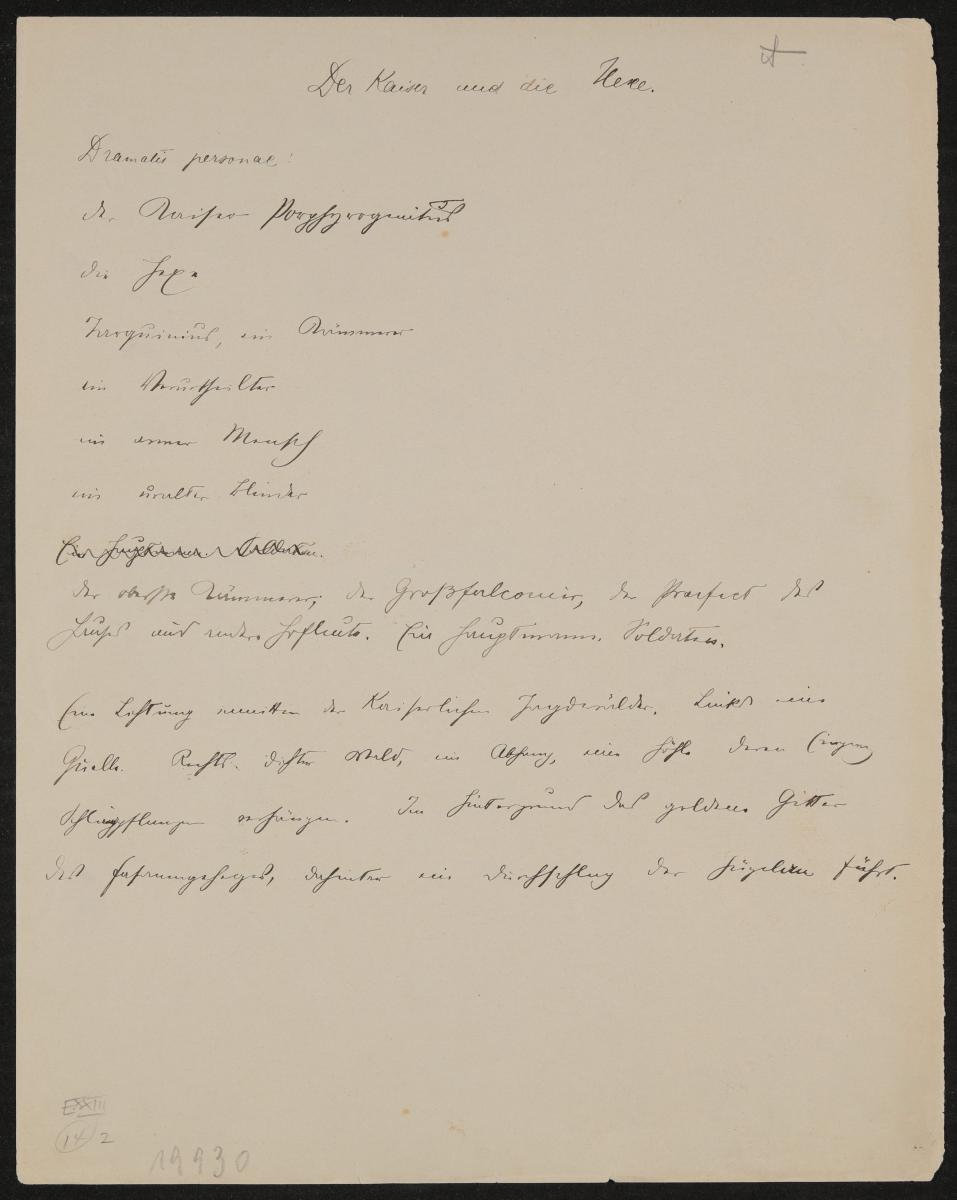 Der Kaiser und die Hexe.
Dramatis personae:
der Kaiser Porphyrogenitus
die Hexe
Tarquinius, ein Kämmerer
ein Verurtheilter
ein armer Mensch
ein uralter Blinder
Ein Hauptmann. Soldaten.
der oberste Kämmerer, der Großfalconier, der Praefect des
Hauses und andere Hofleute. Ein Hauptmann. Soldaten.
Eine Lichtung inmitten der Kaiserlichen Jagdwälder. Links eine
Quelle. Rechts dichter Wald, ein Abhang, eine Höhle deren Eingang
Schlingpflanzen verhängen. Im Hintergrund das goldene Gitter
des Fasanengeheges, dahinter ein Durchschlag der hügelan führt.
EXXIII
14 2
19930